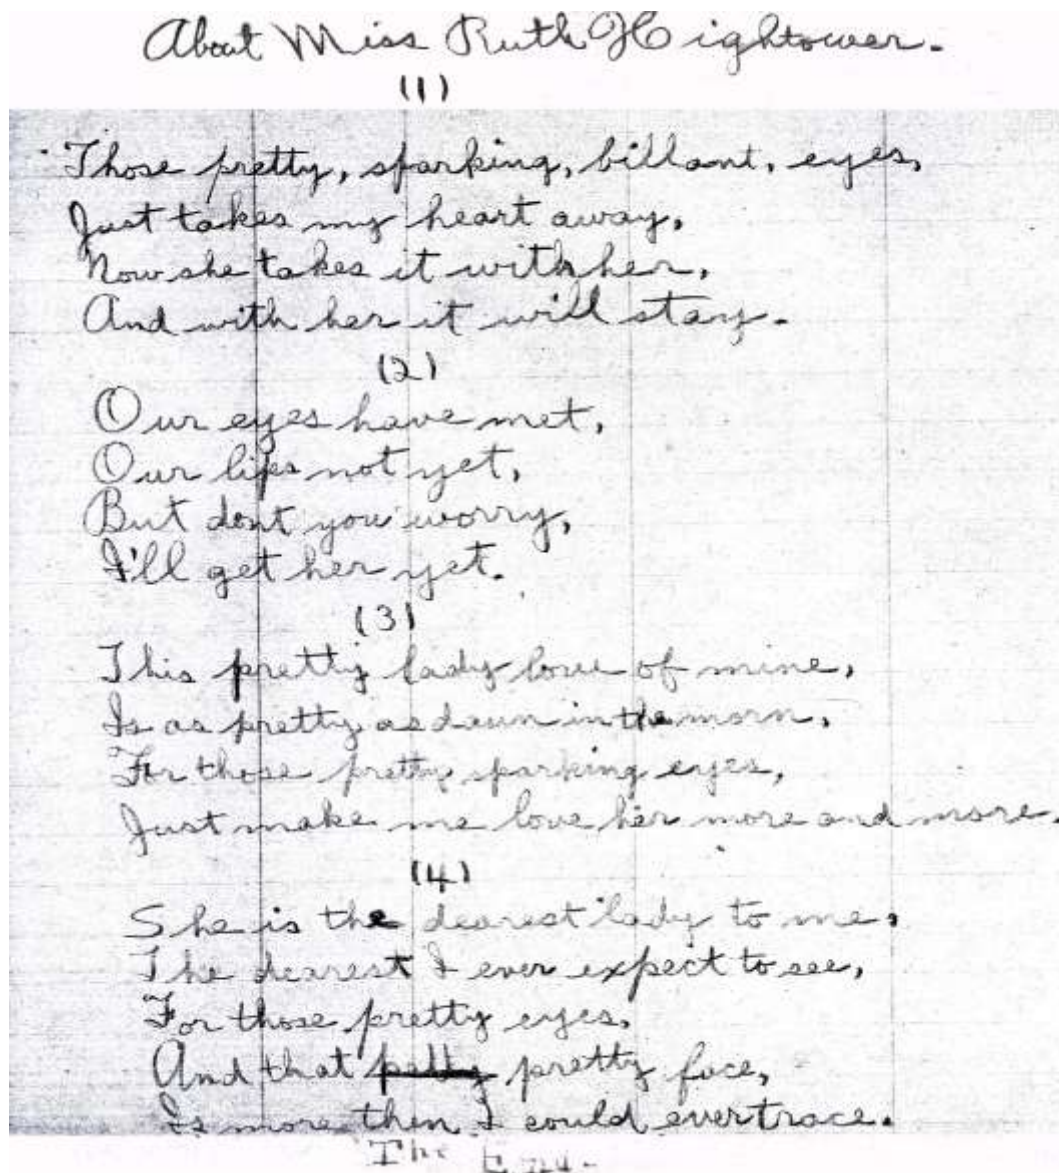 About Miss Ruth Hightower.
(1)
Those pretty, sparking, billant, eyes,
Just takes my heart away,
Now she takes it with her,
And with her it will stay.
(2)
Our eyes have met,
Our lips not yet,
But dont you worry,
I'll get her yet.
(3)
This pretty lady love of mine,
Is as pretty as dawn in the morn,
For those pretty sparking eyes,
Just make me love her more and more.
(4)
She is the dearest lady to me,
The dearest I ever expect to see,
For those pretty eyes,
And that petty pretty face,
Is more then I could ever trace.
The End.